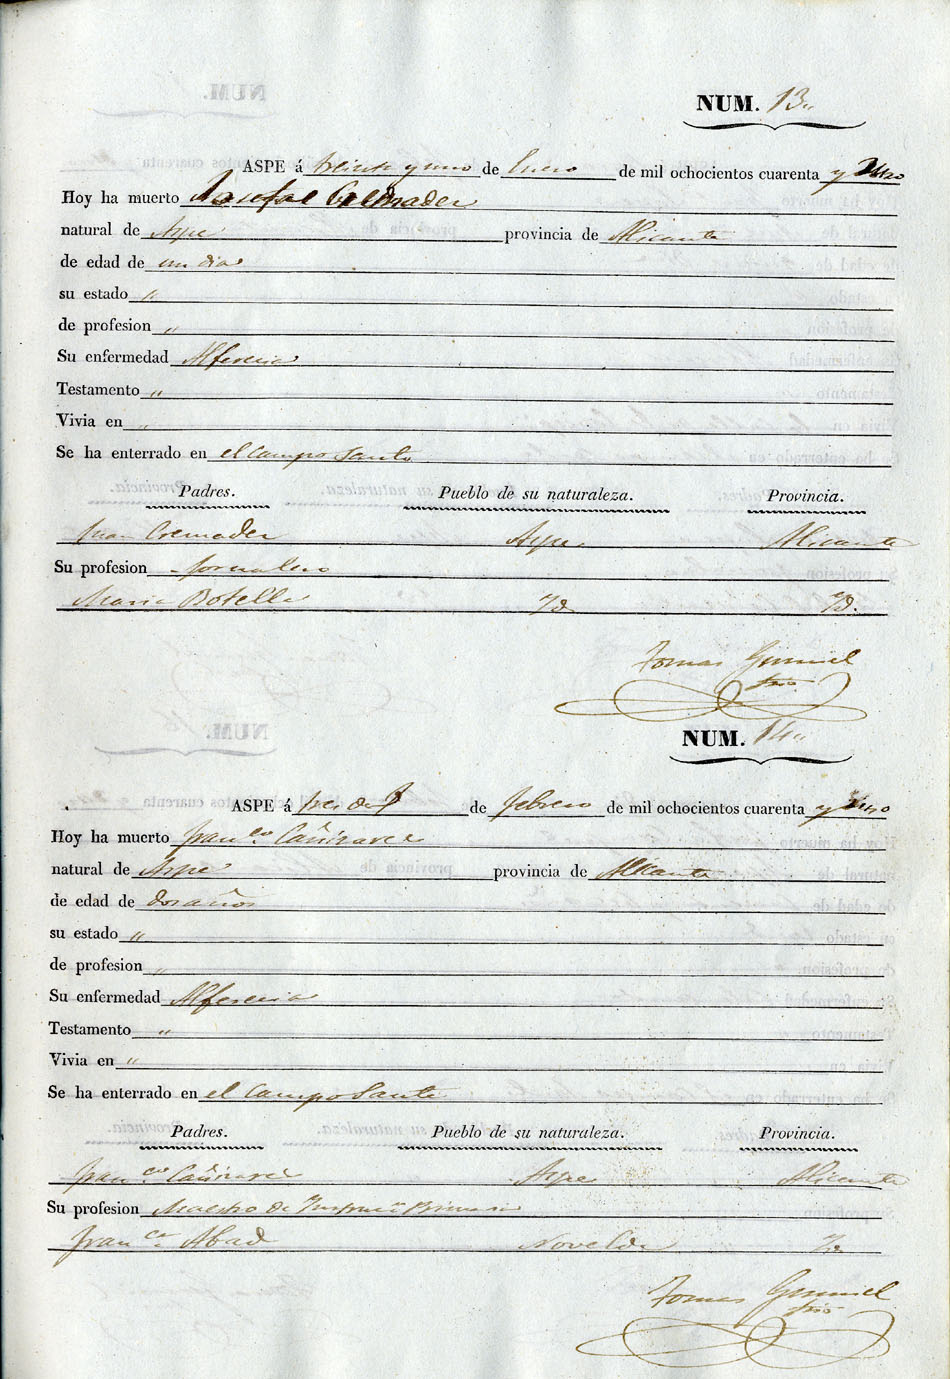 NUM. 13.,
ASPE á treinta y uno de Enero de mil ochocientos cuarenta y uno
Hoy ha muerto Cremades
natural de Aspe provincia de Alicante
de edad de un dia
su estado "
de profesion "
Su enfermedad Alferecia
Testamento "
Vivia en "
Se ha enterrado en el Campo Santo
Padres. Pueblo de su naturaleza. Provincia.
Juan Cremades Aspe Alicante
Su profesion Jornalero
Maria Botella Yd. Yd.
Tomas
srio
NUM. 14.,
ASPE á tres de Febrero de mil ochocientos cuarenta y uno
Hoy ha muerto Franco. Cañizares
natural de Aspe provincia de Alicante
de edad de dos años
su estado "
de profesion "
Su enfermedad Alferecia
Testamento "
Vivia en "
Se ha enterrado en el Campo Santo
Padres. Pueblo de su naturaleza. Provincia.
Franco. Cañizares Aspe Alicante
Su profesion Maestro de
Franca. Abad Novelda Yd
Tomas
srio